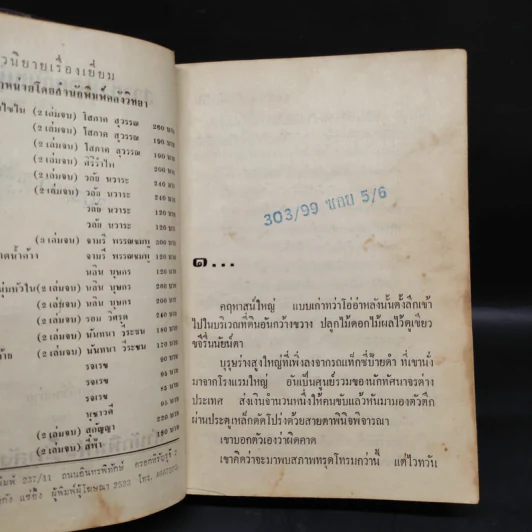 วนิยายเรื่องเยี่ยม
หน่ายโดยสำนักพิมพ์คลังวิทยา
(2 เล่มจบ) โสภาค สุวรรณ 260 บาท
(2 เล่มจบ) โสภาค สุวรรณ 190 บาท
(2 เล่มจบ) โสภาค สุวรรณ 190 บาท
(2 เล่มจบ) สิริรำไพ 200 บาท
(2 เล่มจบ) วลัย นวาระ 240 บาท
(2 เล่มจบ) วลัย นวาระ 240 บาท
วลัย นวาระ 120 บาท
วลัย นวาระ 120 บาท
(3 เล่มจบ) จามรี พรรณชมพู 300 บาท
จามรี พรรณชมพู 120 บาท
นลิน บุษกร 160 บาท
(2 เล่มจบ) นลิน บุษกร 200 บาท
(2 เล่มจบ) รอม วิสุตุ 240 บาท
(2 เล่มจบ) นันทนา วีระชน 180 บาท
(2 เล่มจบ) นันทนา วีระชน 120 บาท
รจเรข 90 บาท
รจเรข 95 บาท
รจเรข 95 บาท
บุษาวดี
(2 เล่มจบ) สกัญญา 220 บาท
(2 เล่มจบ) สีฟ้า 180 บาท
237/11 ถนนอินทรพิทักษ์
แซ่อึ้ง ผู้พิมพ์ผู้โฆษณา 2523 โทร.
303/99 ซอย 5/6
๑...
คฤหาสน์ใหญ่ แบบเก่าทว่าโอ่อ่าหลังนั้นตั้งลึกเข้า
ไปในบริเวณที่ดินอันกว้างขวาง ปลูกไม้ดอกไม้ผลไว้ดูเขียว
ขจีรื่นนัยน์ตา
บุรุษร่างสูงใหญ่ที่เพิ่งลงจากรถแท็กซี่ป้ายดำ ที่เขานั่ง
มาจากโรงแรมใหญ่ อันเป็นศูนย์รวมของนักทัศนาจรต่าง
ประเทศ ส่งเงินจำนวนหนึ่งให้คนขับแล้วหันมามองตัวตึก
ผ่านประตูเหล็กดัดโปร่งด้วยสายตาพินิจพิจารณา
เขาบอกตัวเองว่าผิดคาด
เขาคิดว่าจะมาพบสภาพทรุดโทรมกว่านี้ แต่ไวทวัน